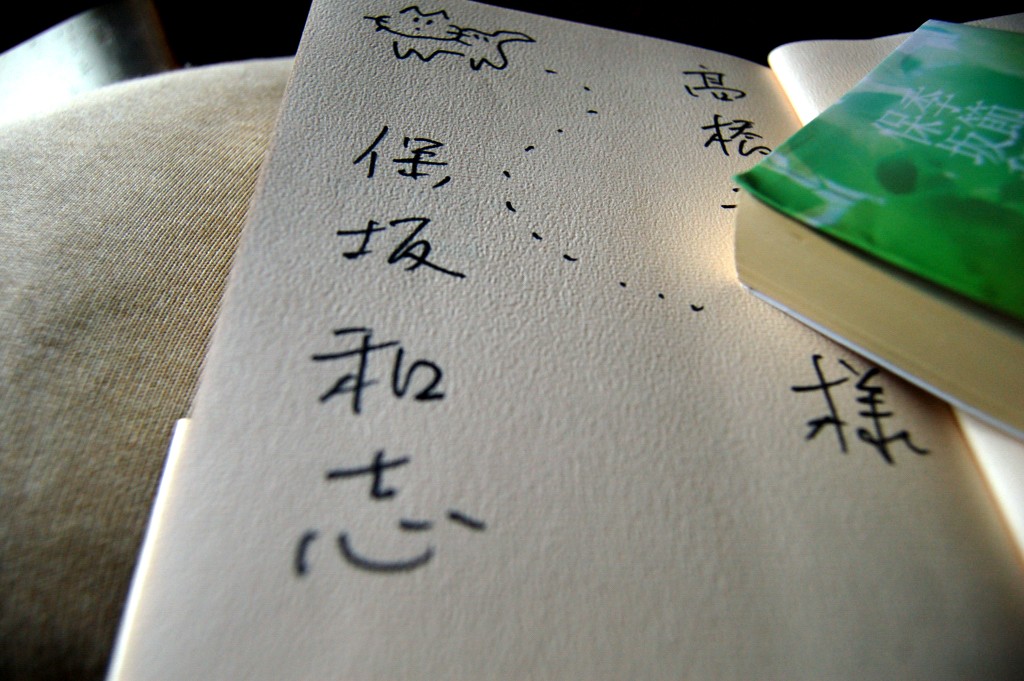 高橋
様
保坂和志
季節
保坂